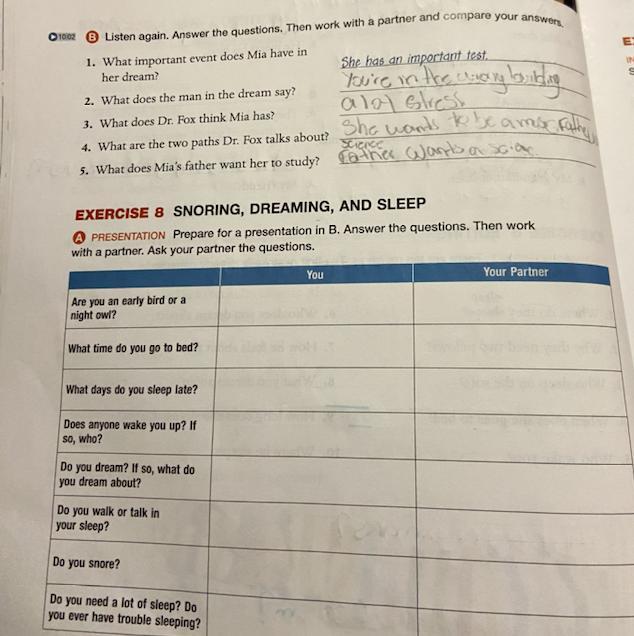 10:02 B Listen again. Answer the questions. Then work with a partner and compare your answers.
1. What important event does Mia have in
her dream?
She has an important test.
2. What does the man in the dream say?
You're in the wrong building
3. What does Dr. Fox think Mia has?
a lot stress
4. What are the two paths Dr. Fox talks about?
She wants to be a
science
5. What does Mia's father want her to study?
Father wants a
EXERCISE 8 SNORING, DREAMING, AND SLEEP
A PRESENTATION Prepare for a presentation in B. Answer the questions. Then work
with a partner. Ask your partner the questions.
You
Your Partner
Are you an early bird or a
night owl?
What time do you go to bed?
What days do you sleep late?
Does anyone wake you up? If
so, who?
Do you dream? If so, what do
you dream about?
Do you walk or talk in
your sleep?
Do you snore?
Do you need a lot of sleep? Do
you ever have trouble sleeping?